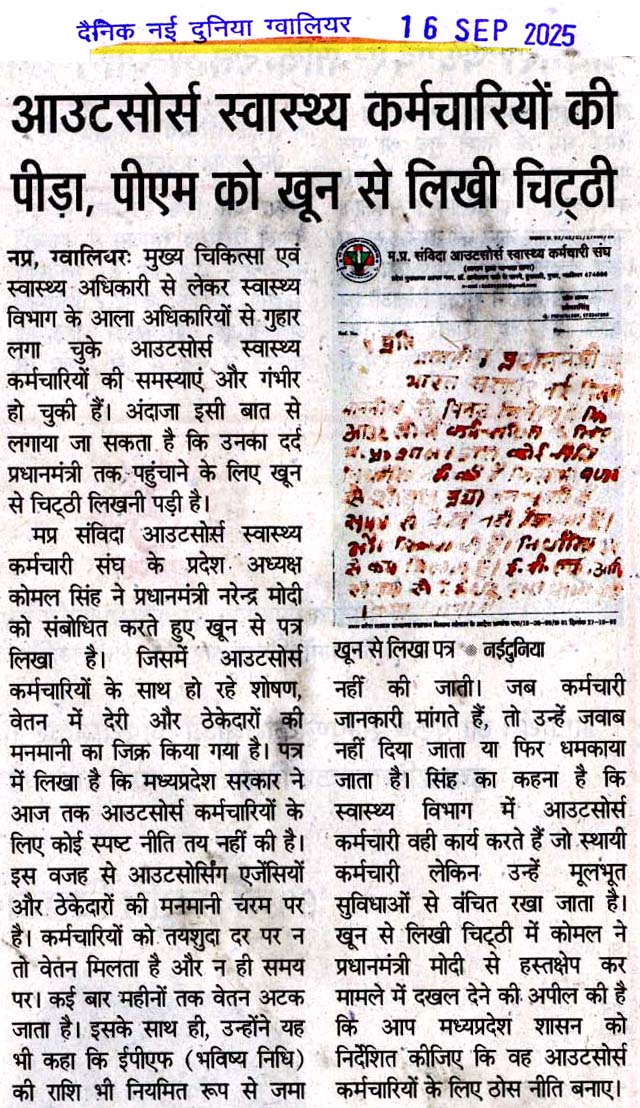 दैनिक नई दुनिया ग्वालियर 16 SEP 2025
आउटसोर्स स्वास्थ्य कर्मचारियों की
पीड़ा, पीएम को खून से लिखी चिट्ठी
नप्र, ग्वालियरः मुख्य चिकित्सा एवं
स्वास्थ्य अधिकारी से लेकर स्वास्थ्य
विभाग के आला अधिकारियों से गुहार
लगा चुके आउटसोर्स स्वास्थ्य
कर्मचारियों की समस्याएं और गंभीर
हो चुकी हैं। अंदाजा इसी बात से
लगाया जा सकता है कि उनका दर्द
प्रधानमंत्री तक पहुंचाने के लिए खून
से चिट्ठी लिखनी पड़ी है।
मप्र संविदा आउटसोर्स स्वास्थ्य
कर्मचारी संघ के प्रदेश अध्यक्ष
कोमल सिंह ने प्रधानमंत्री नरेन्द्र मोदी
को संबोधित करते हुए खून से पत्र
लिखा है। जिसमें आउटसोर्स
कर्मचारियों के साथ हो रहे शोषण,
वेतन में देरी और ठेकेदारों की
मनमानी का जिक्र किया गया है। पत्र
में लिखा है कि मध्यप्रदेश सरकार ने
आज तक आउटसोर्स कर्मचारियों के
लिए कोई स्पष्ट नीति तय नहीं की है।
इस वजह से आउटसोर्सिंग एजेंसियों
और ठेकेदारों की मनमानी चरम पर
है। कर्मचारियों को तयशुदा दर पर न
तो वेतन मिलता है और न ही समय
पर। कई बार महीनों तक वेतन अटक
जाता है। इसके साथ ही, उन्होंने यह
भी कहा कि ईपीएफ (भविष्य निधि)
की राशि भी नियमित रूप से जमा
म.प्र. संविदा आउटसोर्स स्वास्थ्य कर्मचारी संघ
प्रति
प्रधानमंत्री
भारत सरकार नई
खून से लिखा पत्र नईदुनिया
नहीं की जाती। जब कर्मचारी
जानकारी मांगते हैं, तो उन्हें जवाब
नहीं दिया जाता या फिर धमकाया
जाता है। सिंह का कहना है कि
स्वास्थ्य विभाग में आउटसोर्स
कर्मचारी वही कार्य करते हैं जो स्थायी
कर्मचारी लेकिन उन्हें मूलभूत
सुविधाओं से वंचित रखा जाता है।
खून से लिखी चिट्ठी में कोमल ने
प्रधानमंत्री मोदी से हस्तक्षेप कर
मामले में दखल देने की अपील की है
कि आप मध्यप्रदेश शासन को
निर्देशित कीजिए कि वह आउटसोर्स
कर्मचारियों के लिए ठोस नीति बनाए।